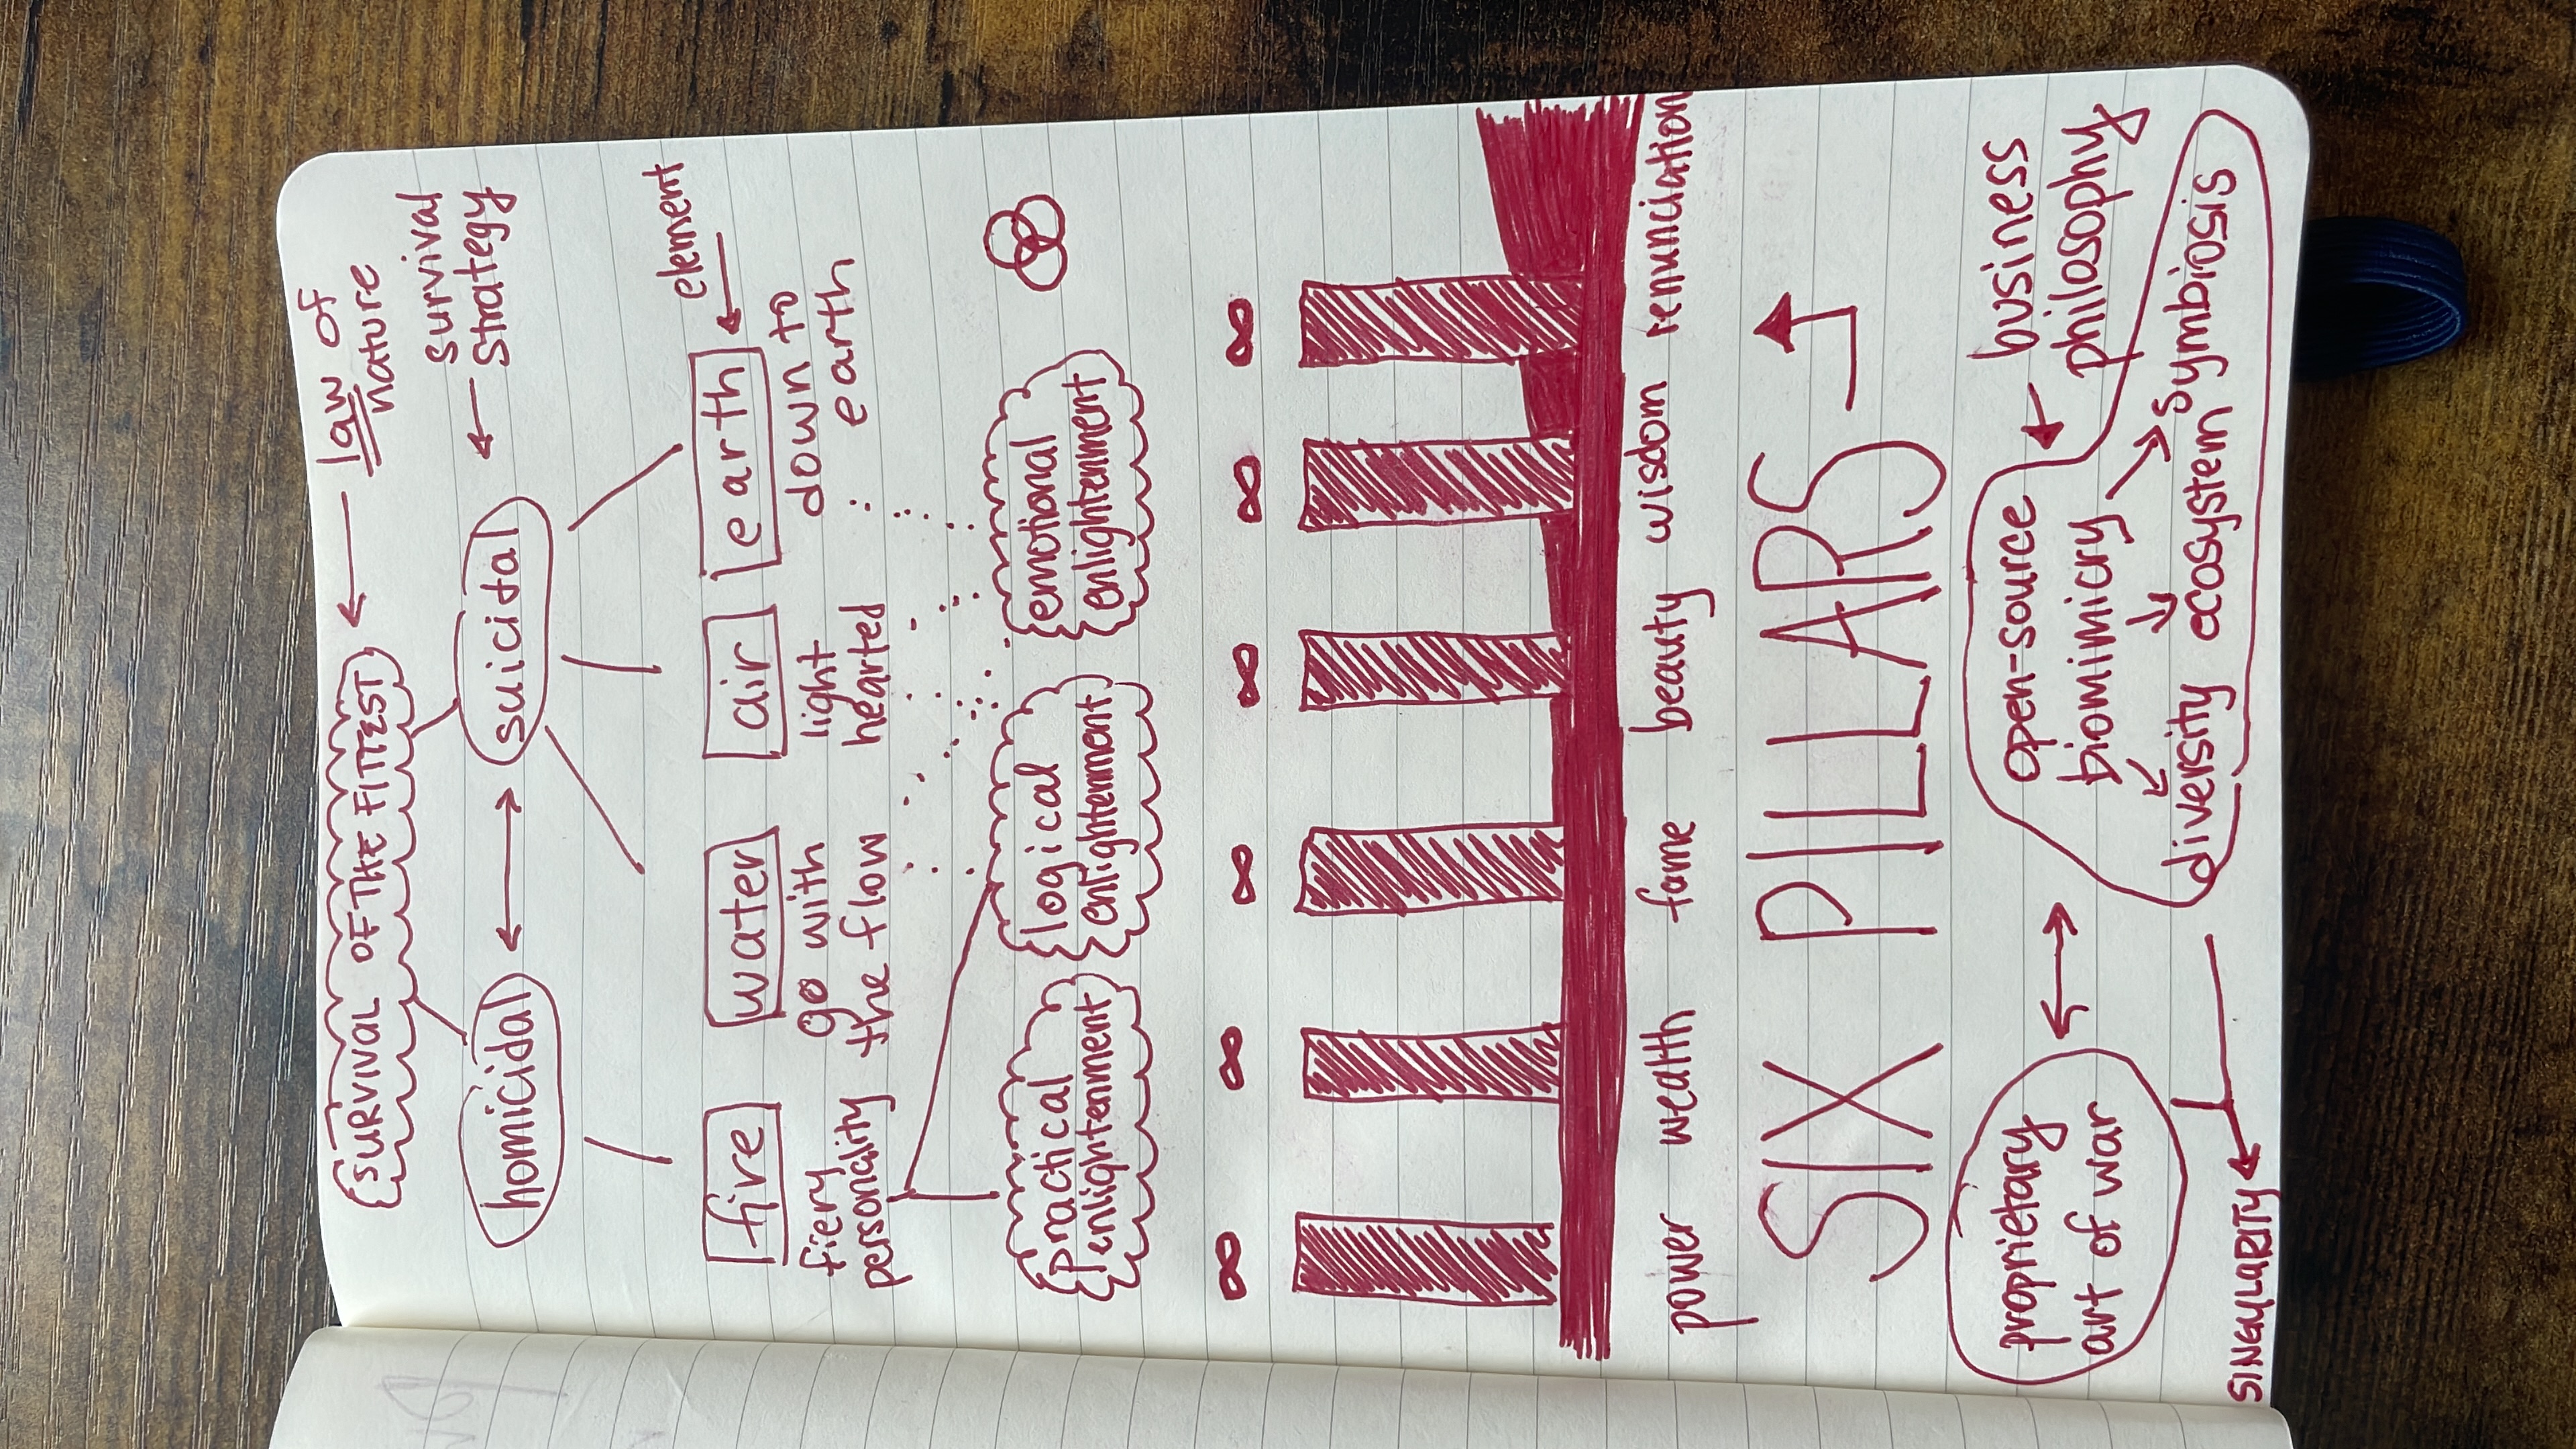 SURVIVAL OF THE FITTEST
law of
nature
survival
strategy
homicidal
suicidal
element
fire
water
air
earth
fiery
personality
go with
the flow
light
hearted
down to
earth
practical
enlightenment
logical
enlightenment
emotional
enlightenment
∞ ∞ ∞ ∞ ∞ ∞
power wealth fame beauty wisdom renunciation
SIX PILLARS
proprietary
art of war
open-source
biomimicry
business
philosophy
diversity ecosystem symbiosis
SINGULARITY